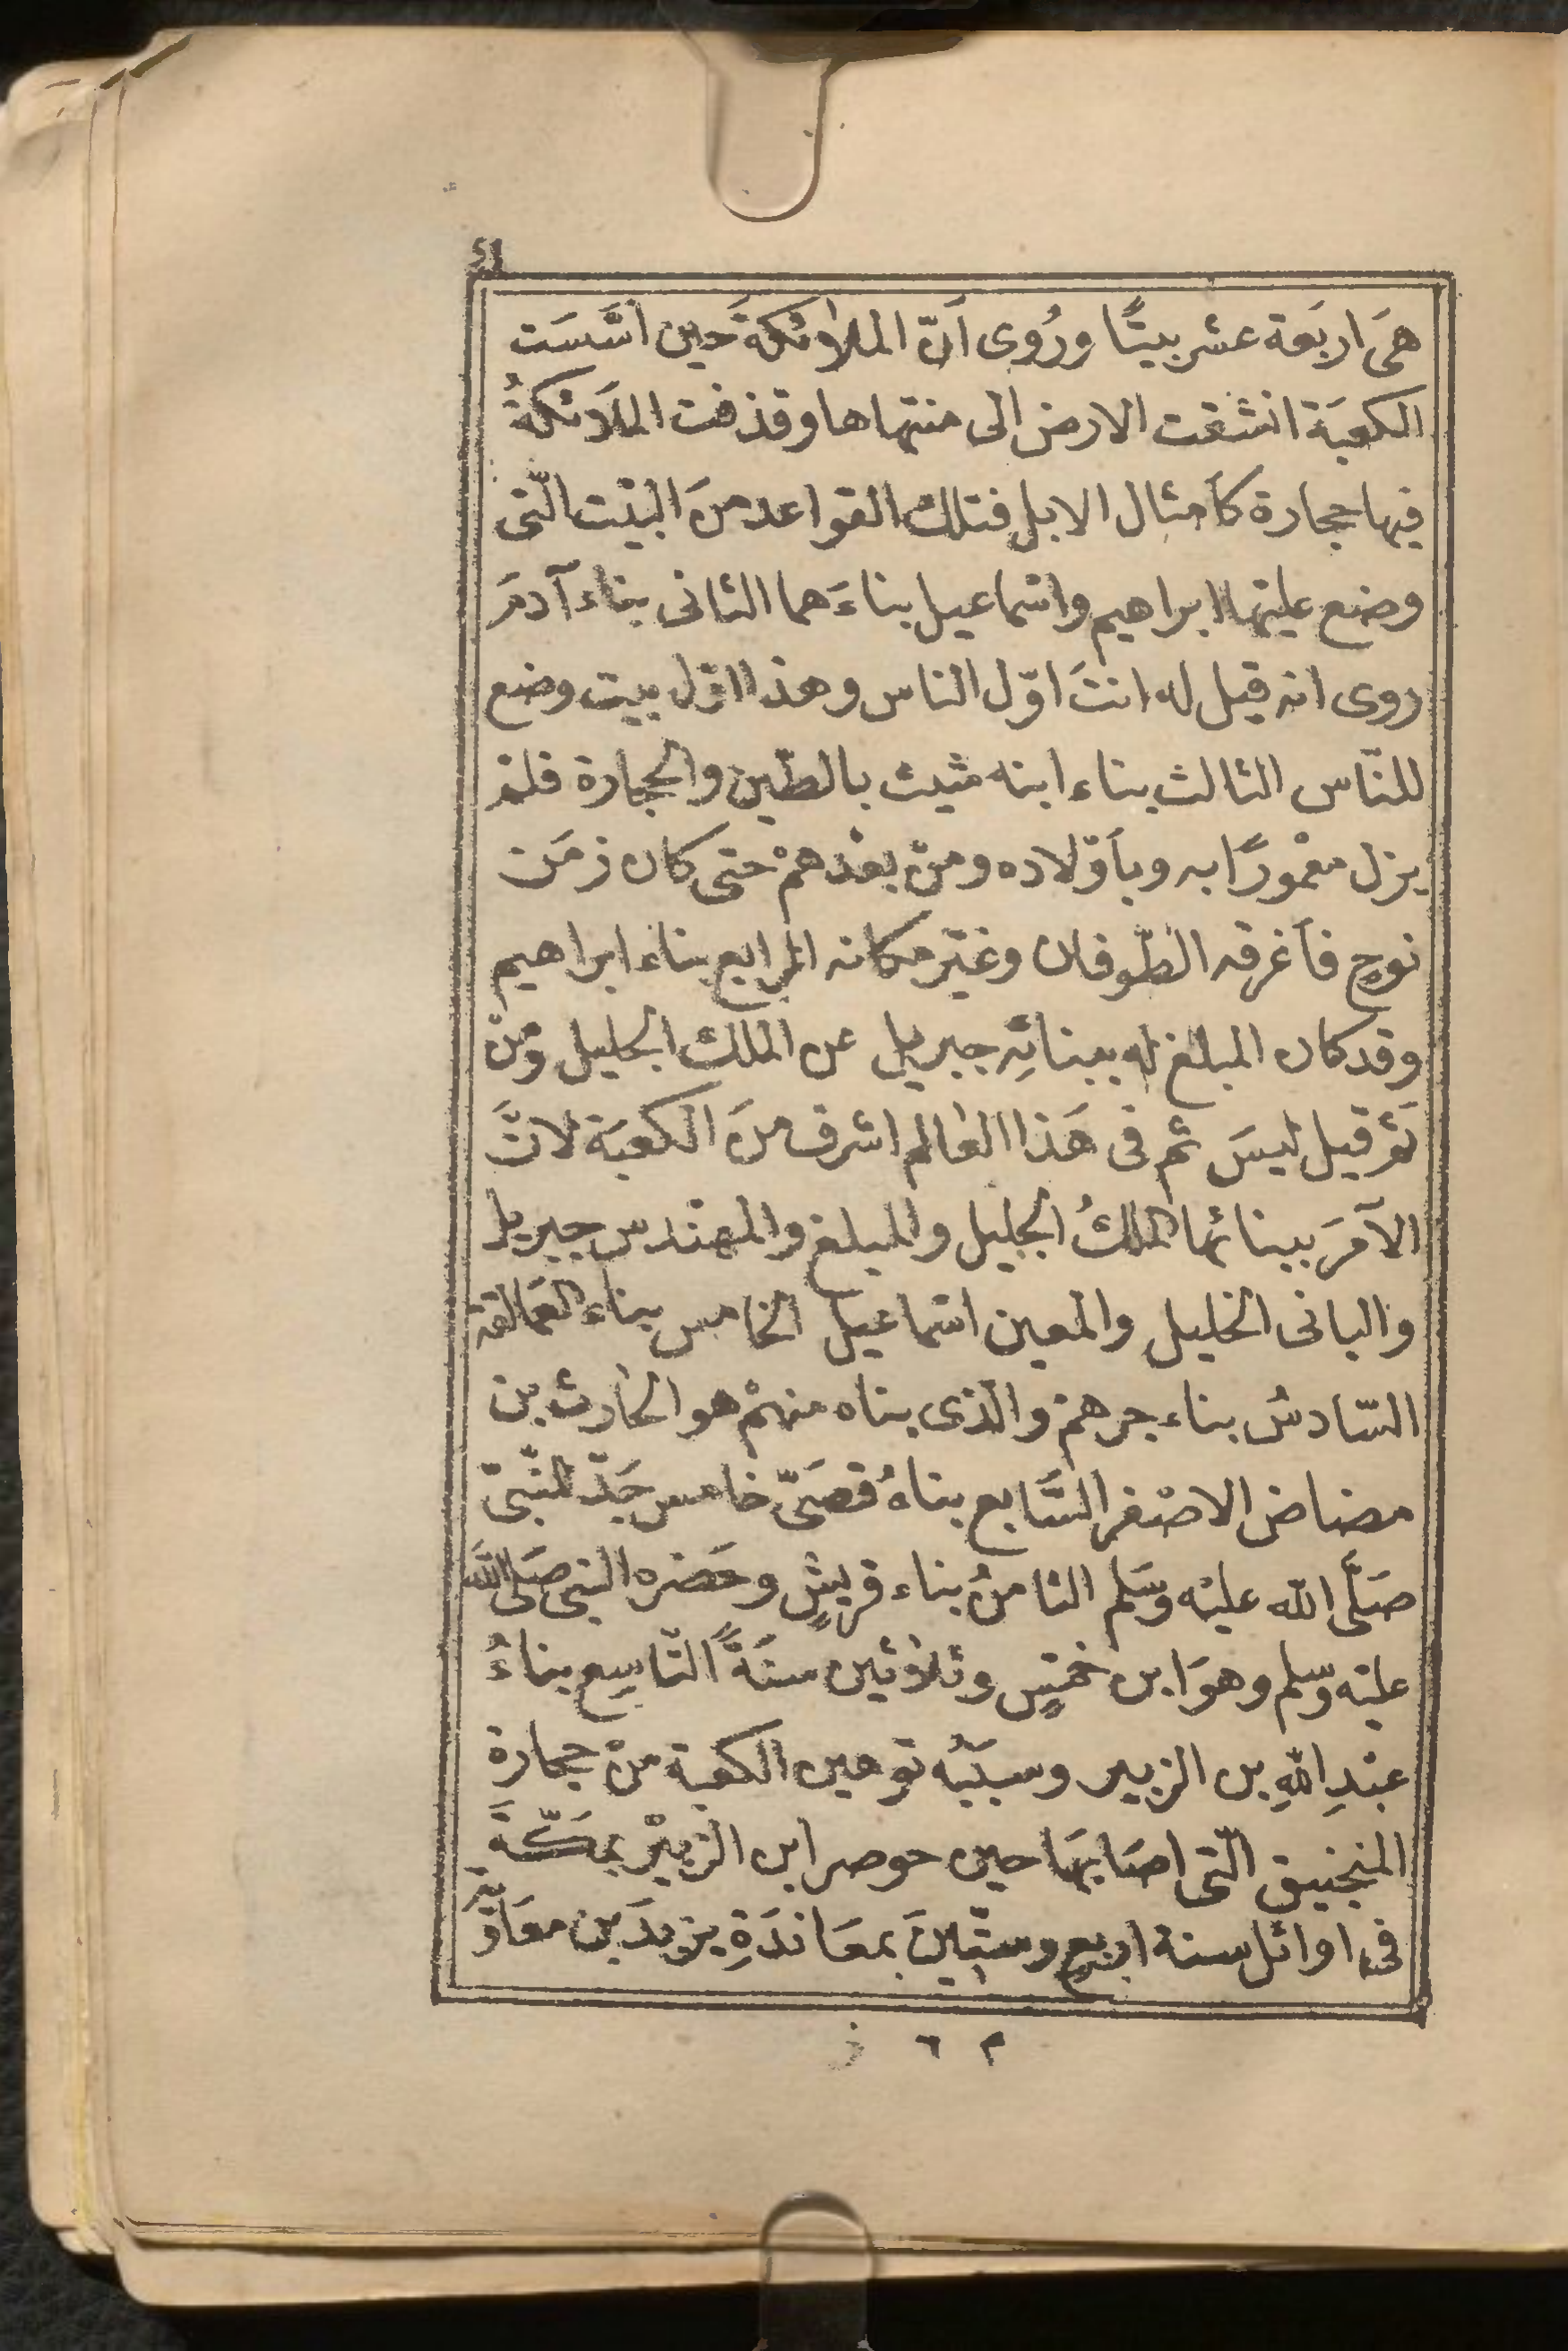 ٤١
هَى اربَعة عشر بيتًا ورُوى اَنّ الملاٰئكةَ حين اسَّسَت
الكعبَة انشقت الارض الى منتهاها وقذفت الملاَئكةُ
فيها حجارة كاَمثال الابل فتلك القواعد منَ البيْت الّتى
وضع عليْها ابراهيم واسماعيل بناءَهما الثانى بناء آدمَ
روى انه قيل له انتَ اوّل الناس وهذا اوّل بيت وضع
للنّاس الثالث بناء ابنه شيث بالطّين والحجارة فلمْ
يزل معْمورًا به وباَوْلاده ومنْ بعْدهمْ حتى كان زمَن
نوحٍ فاَغرقه الطّوفان وغيّر مكانه الرابع بناء ابراهيم
وقد كان المبلغ له ببنائِه جبريل عن الملك الجليل ومنْ
ثَمّ قيل ليسَ ثم فى هَذا العٰالم اشرف منَ الكعبَة لانَّ
الآمرَ ببنائها الملكُ الجليل والمبلغ والمهنْدس جبريل
والبانى الخليل والمعين اسماعيل الخامس بناء العَمالقة
السّادسُ بناء جرهمْ والّذى بناه منهمْ هو الحٰارث بن
مضاض الاصْغر السَّابع بناهُ قصَىّ خامس جَدّ للنّبىّ
صَلَّى الله عليْه وسَلم الثامنُ بناء قريشٍ وحَضره النبى صَلى اللَّه
عليْه وسلم وهوَ ابن خمْسٍ وثلاٰثين سنَةً التّاسِع بناءُ
عبْدِ اللهِ بن الزبير وسبَبُه توهين الكعبة منْ حجارة
المنجنيق الّتى اصَابتهَا حين حوصر ابن الزبيْر بمَكّةَ
فى اوائل سنة اربعٍ وستّينَ بمعَاندَةِ يزيدَ بن معَاوِيَة
م ٦ ز